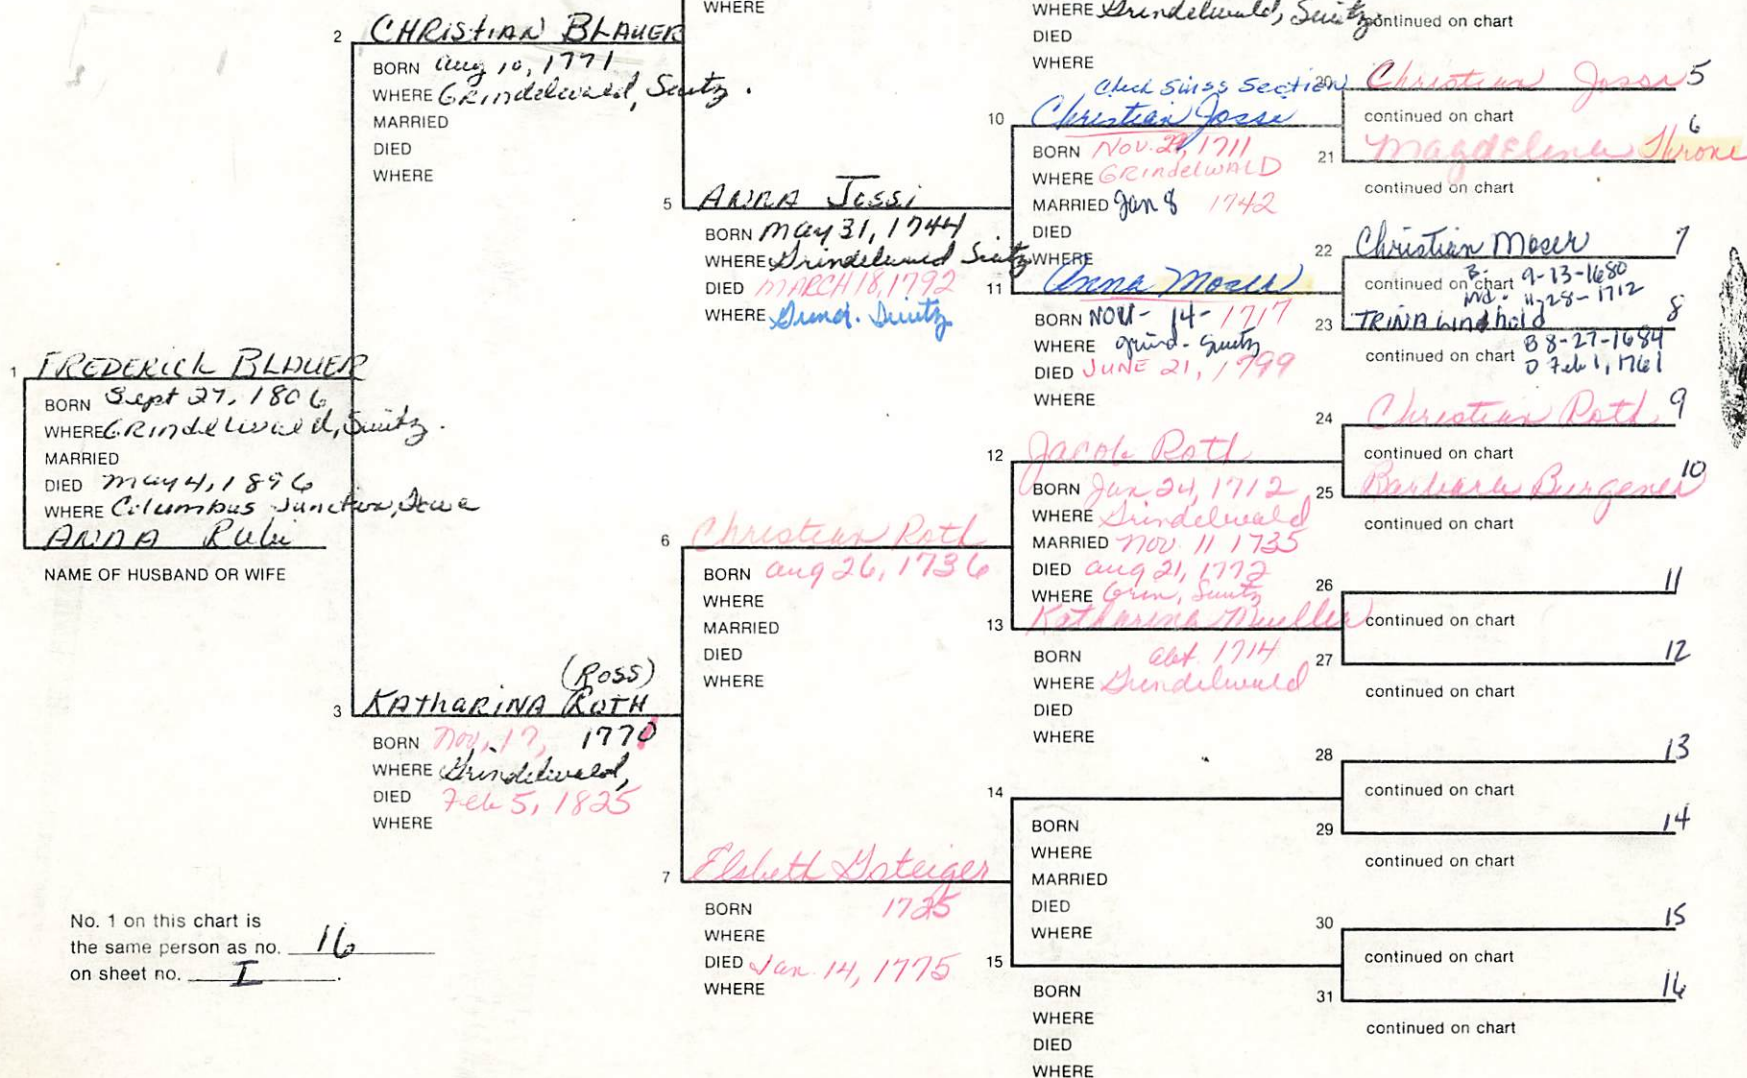 2 CHRISTIAN BLAUER
BORN Aug 10, 1771
WHERE Grindelwald, Switz.
MARRIED
DIED
WHERE
1 FREDERICK BLAUER
BORN Sept 27, 1806
WHERE Grindelwald, Switz.
MARRIED
DIED May 4, 1896
WHERE Columbus Junction, Iowa
ANNA Rubi
NAME OF HUSBAND OR WIFE
(ROSS)
3 KATHARINA ROTH
BORN Nov, 17, 1770
WHERE Grindelwald,
DIED Feb 5, 1825
WHERE
No. 1 on this chart is
the same person as no. 16
on sheet no. I.
WHERE
5 ANNA Jossi
BORN May 31, 1744
WHERE Grindelwald Switz
DIED MARCH 18, 1792
WHERE Grind. Switz
6 Christian Roth
BORN Aug 26, 1736
WHERE
MARRIED
DIED
WHERE
7 Elsbeth Gsteiger
BORN 1725
WHERE
DIED Jan. 14, 1775
WHERE
WHERE Grindelwald, Switz
DIED
WHERE
Check Swiss Section
10 Christian Josse
BORN Nov. 29, 1711
WHERE GRINDELWALD
MARRIED Jan 8 1742
DIED
WHERE
11 Anna Moser
BORN NOV- 14- 1717
WHERE Grind- Switz
DIED JUNE 21, 1799
WHERE
12 Jacob Roth
BORN Jan 24, 1712
WHERE Grindelwald
MARRIED Nov. 11 1735
DIED Aug 21, 1772
WHERE Grin, Switz
13 Katharina Mueller
BORN abt. 1714
WHERE Grindelwald
DIED
WHERE
14
BORN
WHERE
MARRIED
DIED
WHERE
15
BORN
WHERE
DIED
WHERE
continued on chart
20 Christian Jossi 5
continued on chart 6
21 Magdelena
continued on chart
22 Christian Moser 7
continued on chart B- 9-13-1680
Md. 11-28-1712
23 TRINA Windhold 8
continued on chart B 8-27-1684
D Feb 1, 1761
24 Christian Roth 9
continued on chart
25 Barbara Burgener 10
continued on chart
26 11
continued on chart
27 12
continued on chart
28 13
continued on chart
29 14
continued on chart
30 15
continued on chart
31 16
continued on chart